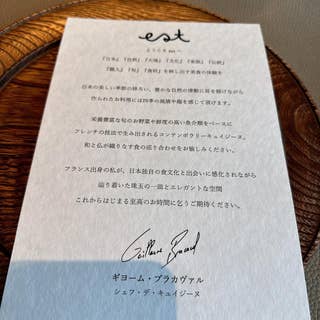 est
ようこそ est へ
『日本』『自然』『大地』『文化』『東京』『伝統』
『職人』『旬』『食材』を映し出す美食の体験を
日本の美しい季節の移ろい、豊かな自然の律動に耳を傾けながら
作られたお料理には四季の風情や趣を感じて頂けます。
栄養豊富な旬のお野菜や鮮度の高い魚介類をベースに
フレンチの技法で生み出されるコンテンポラリーキュイジーヌ。
和と仏が織りなす食の巡り合わせをお愉しみください。
フランス出身の私が、日本独自の食文化と出会いに感化されながら
辿り着いた珠玉の一皿とエレガントな空間
これからはじまる至高のお時間に乞うご期待ください。
Guillaume Bracaval
ギヨーム・ブラカヴァル
シェフ・デ・キュイジーヌ